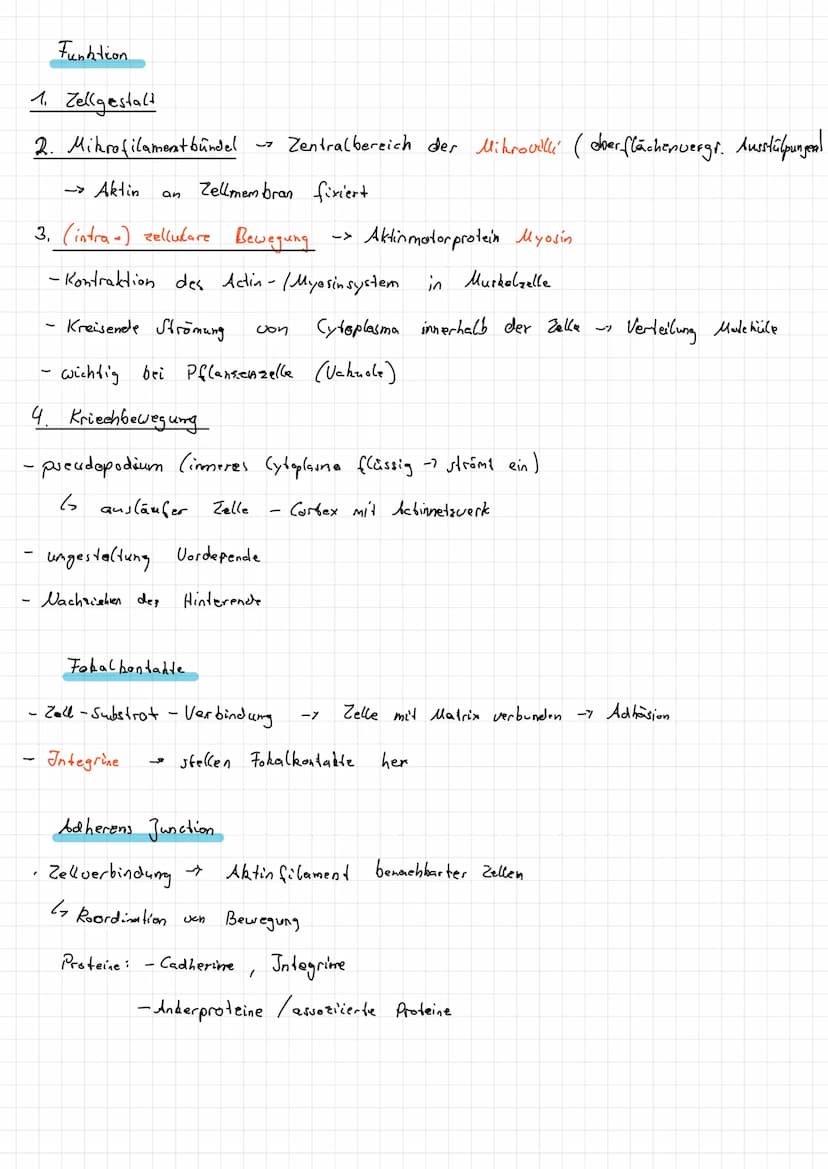 Funktion
1. Zellgestalt
2. Mikrofilamentbündel → Zentralbereich der Mikrovilli (oberflächenvergr. Ausstülpungen)
→ Aktin an Zellmembran fixiert
3. (intra-) zellulare Bewegung → Aktinmotorprotein Myosin
- Kontraktion des Actin-/Myosinsystem in Muskelzelle
- Kreisende Strömung von Cytoplasma innerhalb der Zelle → Verteilung Moleküle
- wichtig bei Pflanzenzelle (Vakuole)
4. Kriechbewegung
- pseudopodium (inneres Cytoplasma flüssig → strömt ein)
↳ ausläufer Zelle - Cortex mit Actinnetzwerk
- umgestaltung Vorderende
- Nachziehen des Hinterende
Fokalkontakte
- Zell-Substrat-Verbindung → Zelle mit Matrix verbunden → Adhäsion
- Integrine → stellen Fokalkontakte her
Adherens Junction
· Zellverbindung → Aktinfilament benachbarter Zellen
↳ Koordination von Bewegung
Proteine: - Cadherine, Integrine
- Ankerproteine / assoziierte Proteine